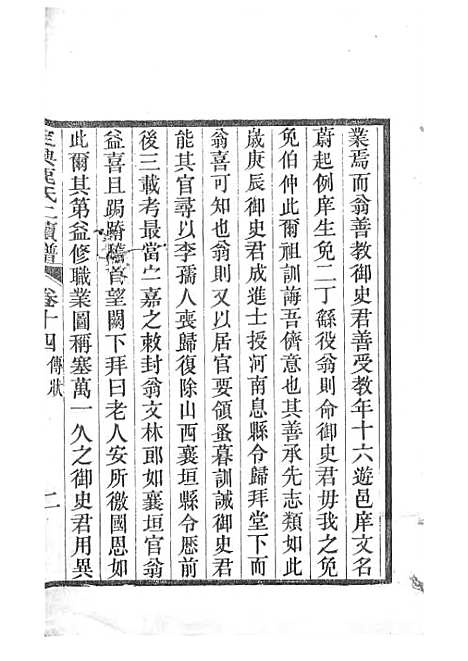 業焉而翁善教御史君善受教年十六遊邑庠文名
蔚起例庠生免二丁繇役翁則命御史君毋我之免
免伯仲此爾祖訓誨吾儕意也其善承先志類如此
歲庚辰御史君成進士授河南息縣令歸拜堂下而
翁喜可知也翁則又以居官要領蚤暮訓誡御史君
能其官尋以李孺人喪歸復除山西襄垣縣令歷前
後三載考最當一嘉之敕封翁文林郎如襄垣官翁
益喜且跼蹐稽首望闕下拜曰老人安所徼國恩如
此爾其第益修職業圖稱塞萬一久之御史君用異
定興鹿氏二續譜 卷十四 傳狀 二